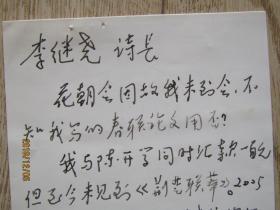 李继尧 诗长
花朝会因故我未到会,不
知我写的春联论文用否?
我与陈开学同时汇款一百元
但至今未见到《荆楚联萃》2005
2019/12/08